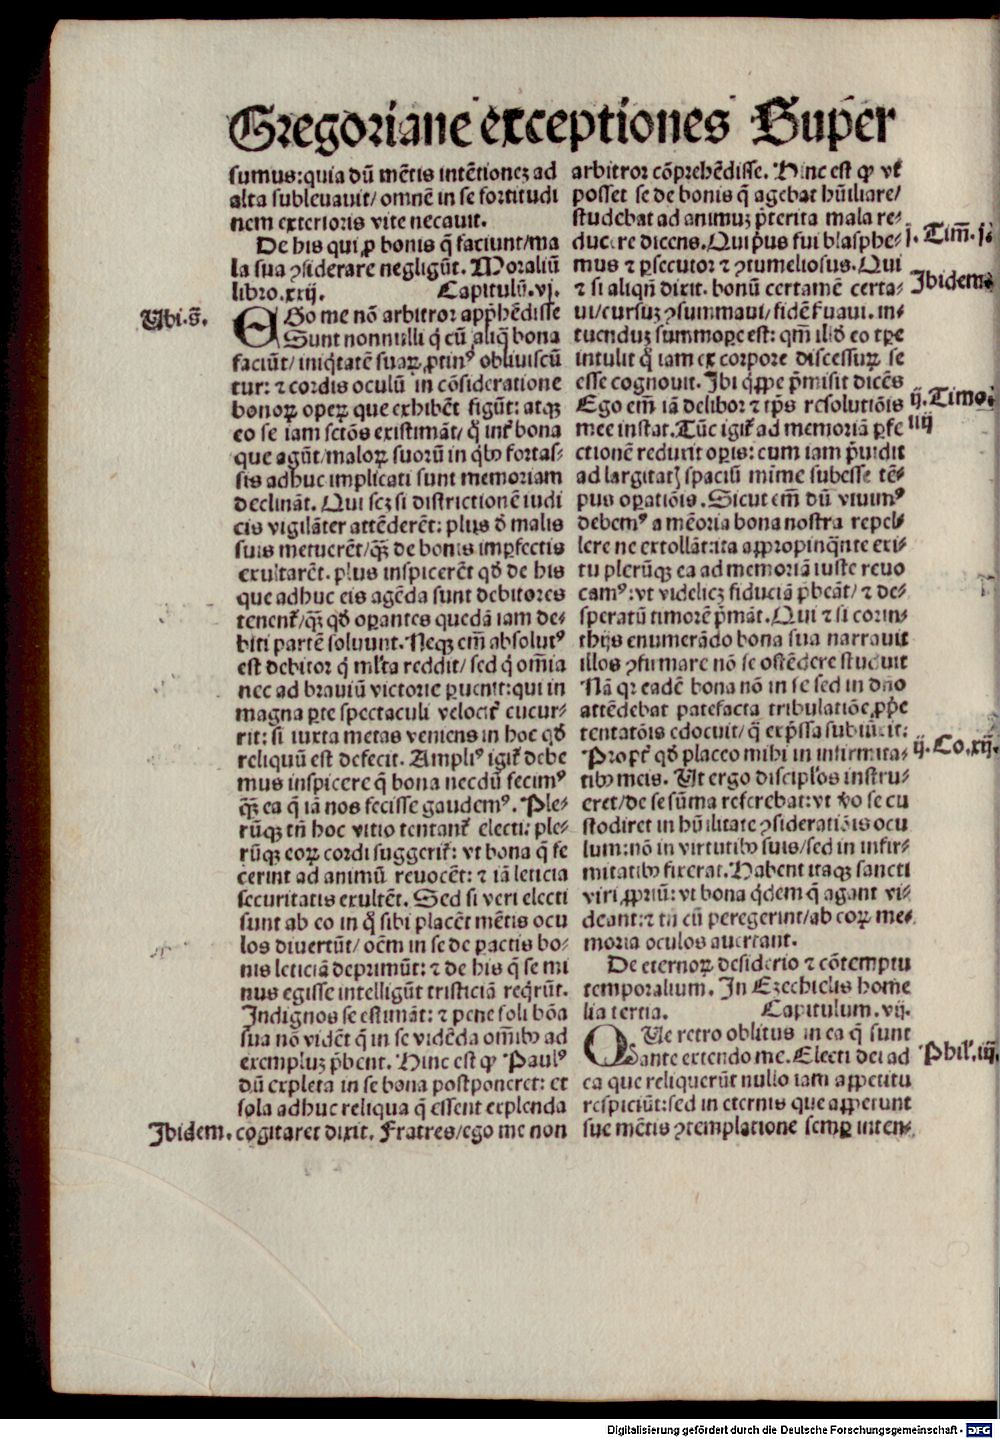 Gregoriane exceptiones Super
sumus: quia dū mētis intētionez ad
alta subleuauit/ omnē in se fortitudi
nem exterioris vite necauit.
De his qui ꝓ bonis q̄ faciunt/ma
la sua ꝯsiderare negligūt. Moraliū
libro.xxij. Capitulū.vj.
Ubi.s̄.
EGo me nō arbitror app̄hēdisse
Sunt nonnulli q̇ cū aliq̄ bona
faciūt/ iniq̇tatē suaꝝ ꝓtinꝰ obliuiscū
tur: ⁊ cordis oculū in cōsideratione
bonoꝝ opeꝝ que exhibēt figūt: atqꝫ
eo se iam sctōs existimāt/ q̇ int̄ bona
que agūt/maloꝝ suorū in q̇bꝫ fortas-
sis adhuc implicati sunt memoriam
declināt. Qui scꝫ si districtionē iudi
cis vigilāter attēderēt: plus đ malis
suis metuerēt/q̄ꝫ de bonis imꝑfectis
exultarēt. plus inspicerēt qđ de his
que adhuc eis agēda sunt debitores
tenent̄/q̄ꝫ qđ oꝑantes quedā iam de-
biti partē soluunt. Neqꝫ em̄ absolutꝰ
est debitor q̇ ml̄ta reddit/ sed q̇ om̄ia
nec ad brauiū victorie ꝑuenit: qui in
magna ꝑte spectaculi velocit̄ cucur-
rit: si iuxta metas veniens in hoc qđ
reliquū est defecit. Ampliꝰ igit̄ debe
mus inspicere q̄ bona necdū fecimꝰ
q̄ꝫ ea q̄ iā nos fecisse gaudemꝰ. Ple-
rūqꝫ tn̄ hoc vitio tentant̄ electi: ple-
rūqꝫ eoꝝ cordi suggerit̄: vt bona q̄ fe
cerint ad animū reuocēt: ⁊ iā leticia
securitatis exultēt. Sed si veri electi
sunt ab eo in q̇ sibi placēt mētis ocu
los diuertūt/ oēm in se de ꝑactis bo-
nis leticiā deprimūt: ⁊ de his q̄ se mi
nus egisse intelligūt tristiciā req̇rūt.
Indignos se estimāt: ⁊ pene soli bōa
sua nō vidēt q̇ in se vidēda om̄ibꝫ ad
exempluꝫ p̄bent. Hinc est ꝙ Paulꝰ
dū expleta in se bona postponeret: et
sola adhuc reliqua q̄ essent explenda
Ibidem.
cogitaret dixit. Fratres/ego me non
arbitror cōprehēdisse. Hinc est ꝙ vt̄
posset se de bonis q̄ agebat hūiliare/
studebat ad animuꝫ p̄terita mala re-
j. Tim̄. j.
ducere dicens. Qui p̄us fui blasphe-
mus ⁊ ꝑsecutor ⁊ ꝯtumeliosus. Qui
Ibidem.
⁊ si aliqn̄ dixit. bonū certamē certa-
ui/cursuꝫ ꝯsummaui/ fidē ẜuaui. in-
tuenduꝫ summoꝑe est: qm̄ illđ eo tꝑe
intulit q̇ iam ex corpore discessuꝝ se
esse cognouit. Ibi q̇ꝑpe p̄misit dicēs
ij. Timo.
iiij
Ego em̄ iā delibor ⁊ tp̄s resolutiōis
mee instat. Tūc igit̄ ad memoriā ꝑfe
ctionē rediit oꝑis: cum iam p̄uidit
ad largitatꝭ spaciū mīme subesse tē-
pus oꝑatiōis. Sicut em̄ dū viuimꝰ
debemꝰ a mēoria bona nostra repel-
lere ne extollāt: ita aꝓpropinq̄nte exi-
tu plerūqꝫ ea ad memoriā iuste reuo
camꝰ: vt videlicꝫ fiduciā p̄beāt/ ⁊ de-
speratū timorē p̄māt. Qui ⁊ si corin-
thijs enumerādo bona sua narrauit
illos ꝯfirmare nō se ostēdere studuit
Nā qꝛ eadē bona nō in se sed in dn̄o
attēdebat patefacta tribulatiōe, ꝓp̄e
tentatōis edocuit/ q̄ exp̄ssa subiūxit:
ij. Co. xij.
Propt̄ qđ placeo mihi in infirmita-
tibꝫ meis. Ut ergo discipl̄os instru-
eret/de se sūma referebat: vt v̄o se cu
stodiret in hūilitate ꝯsideratiōis ocu
lum: nō in virtutibꝫ suis/sed in infir-
mitatibꝫ fixerat. Habent itaqꝫ sancti
viri ꝓpriū: vt bona q̇dem q̄ agant vi-
deant: ⁊ tn̄ cū peregerint/ab eoꝝ me-
moria oculos auertant.
De eternoꝝ desiderio ⁊ cōtemptu
temporalium. In Ezechielis home
lia tertia. Capitulum. vij.
QUe retro oblitus in ea q̄ sunt
Phil̄. iij.
ante extendo me. Electi dei ad
ea que reliquerūt nullo iam aꝓpetitu
respiciūt: sed in eternis que aꝓpetunt
sue mētis ꝯtemplatione semꝑ inten-
Digitalisierung gefördert durch die Deutsche Forschungsgemeinschaft - DFG